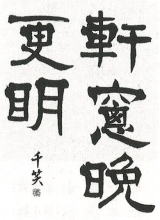 軒窓晩
更明
千笑